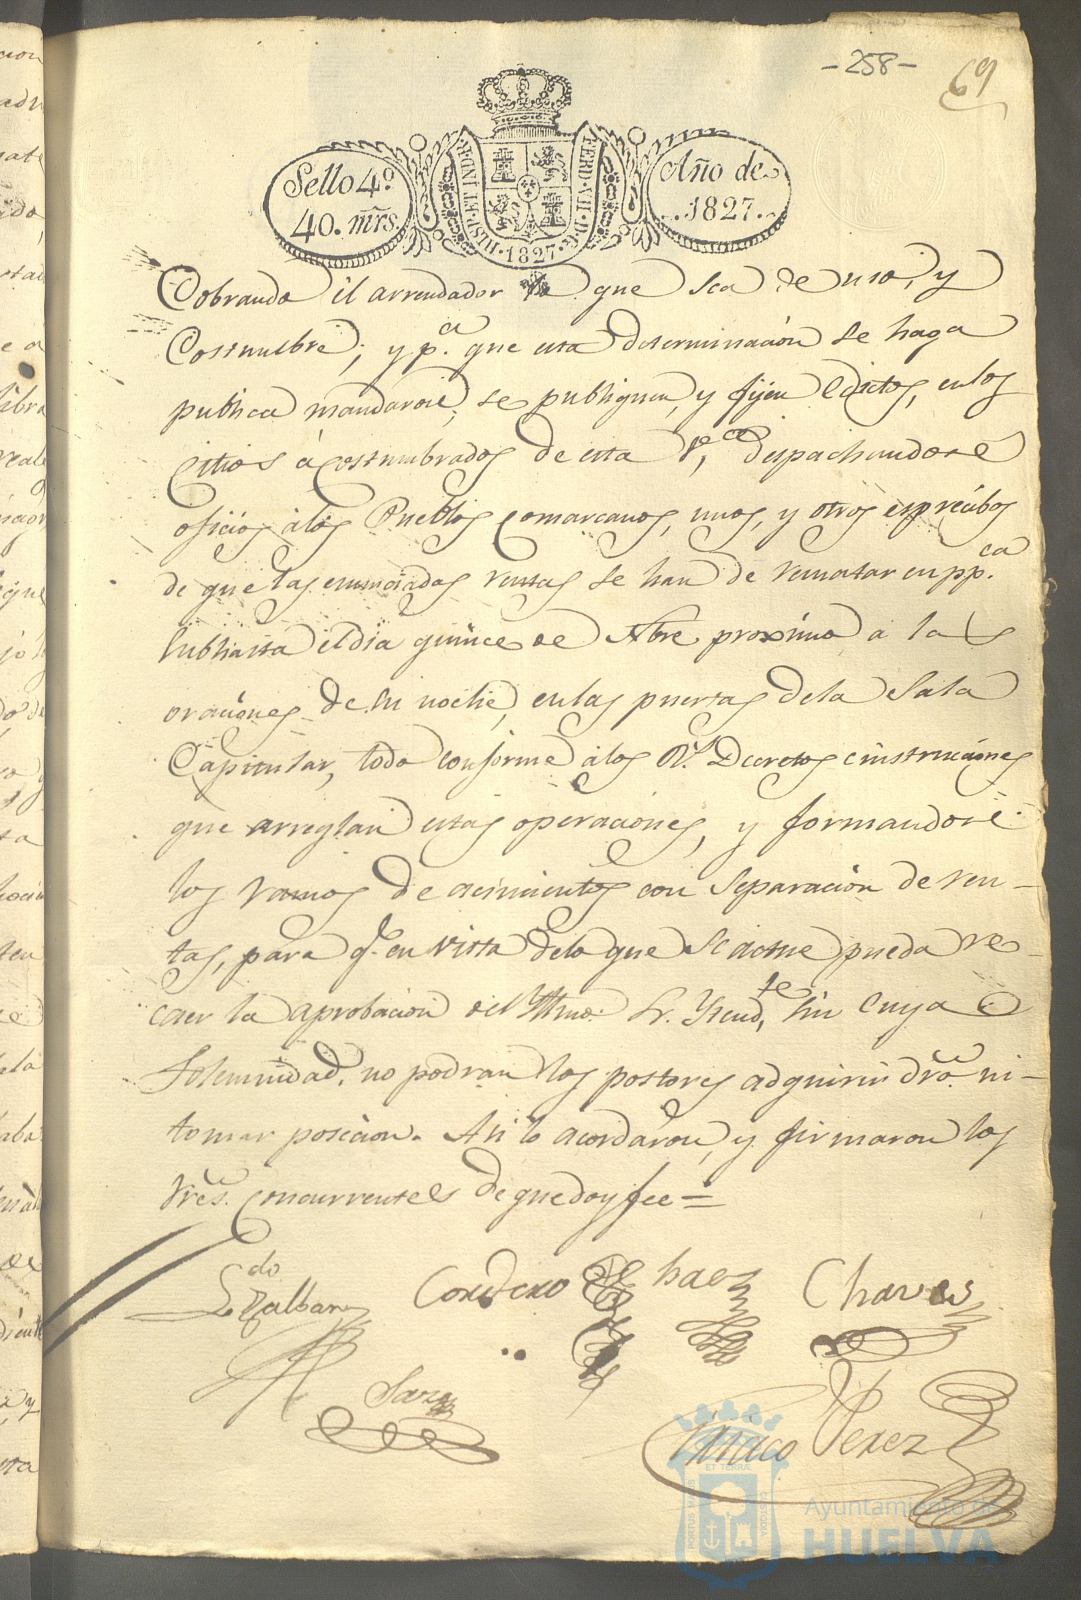 -258-
69
Sello 4.º
40. mrs
HISP. ET IND. R.
FERD. VII. D. G.
1827
Año de
1827.
Cobrando el arrendador lo que sea de uso, y
Costumbre; y p.ª que esta determinacion se haga
publica mandaron, se publiquen, y fijen Edictos, en los
citios acostumbrados de esta V.ª, despachandose
oficios a los Pueblos comarcanos, unos, y otros expresibos
de que las enunciadas rentas se han de rematar en pp.ca
subhasta el dia quince de Nbre proximo a las
oraciones de su noche, en las puertas de la Sala
Capitular, todo conforme a los Rs. Decretos e instruciones
que arreglan estas operaciones, y formandose
los ramos de acimientos con separacion de ren-
tas, para q.e en vista de lo que se actue pueda re-
caer la aprobacion del Yltmo. Sr. Ytend.te, sin cuya
Solemnidad, no podran los postores adquirir dro. ni
tomar posecion. Asi lo acordaron, y firmaron los
Sres. concurrentes de que doy fee=
L.do
Cordero
Chaves
Perez
PORTUS MARIS
ET TERRÆ
CUSTODIA
Ayuntamiento de
HUELVA